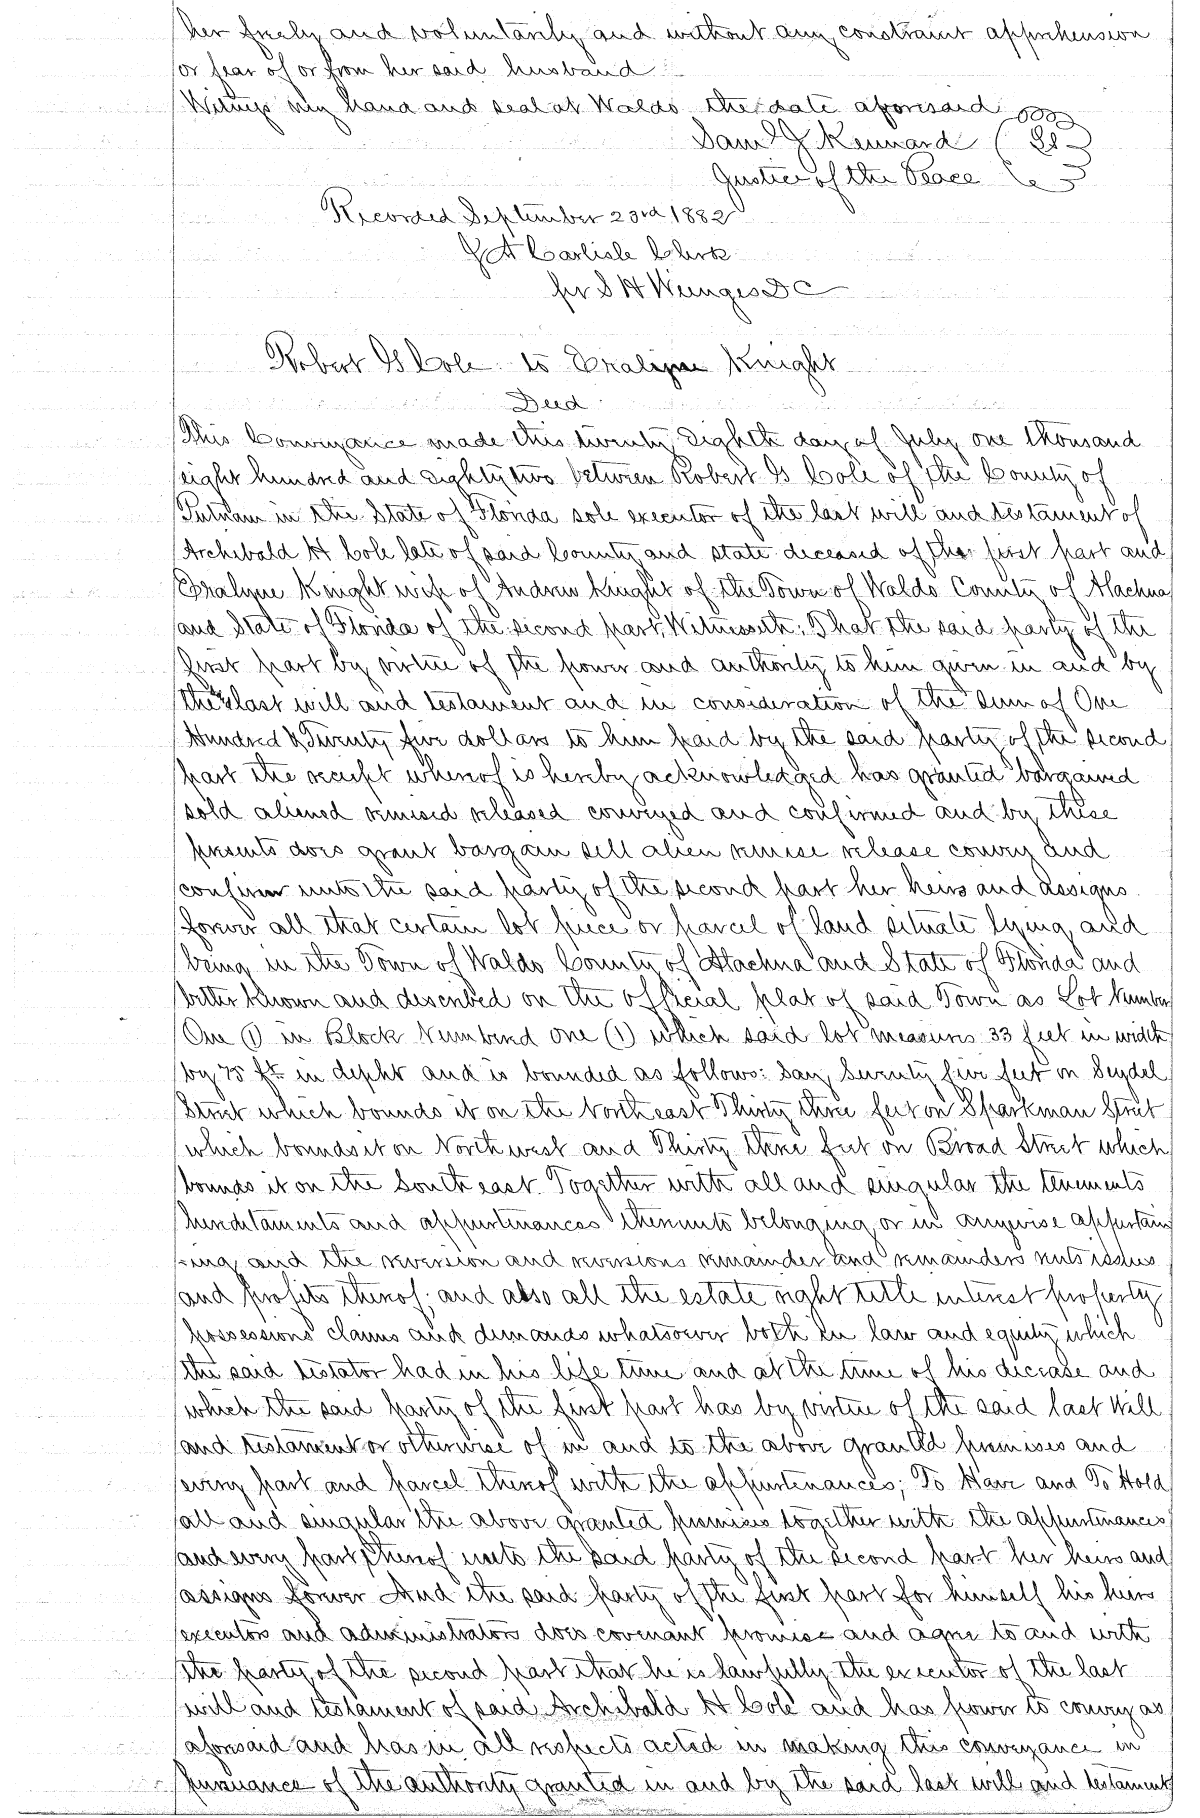 her freely and voluntarily and without any constraint apprehension
or fear of or from her said husband
Witness my hand and seal at Waldo the date aforesaid
Saml J Kennard
Justice of the Peace
Recorded September 23rd 1882
J A Carlisle Clerk
per S H Wienges DC
Robert G Cole to Eralyne Knight
Deed
This Conveyance made this twenty Eighth day of July one thousand
eight hundred and eighty two between Robert G Cole of the County of
Putnam in the State of Florida sole executor of the last will and testament of
Archibald H Cole late of said County and state deceased of the first part and
Eralyne Knight wife of Andrew Knight of the Town of Waldo County of Alachua
and State of Florida of the second part, Witnesseth; That the said party of the
first part by virtue of the power and authority to him given in and by
the last will and testament and in consideration of the sum of One
Hundred & Twenty five dollars to him paid by the said party of the second
part the receipt whereof is hereby acknowledged has granted bargained
sold aliened remised released conveyed and confirmed and by these
presents does grant bargain sell alien remise release convey and
confirm unto the said party of the second part her heirs and assigns
forever all that certain lot piece or parcel of land situate lying and
being in the Town of Waldo County of Alachua and State of Florida and
better known and described on the official plat of said Town as Lot Number
One (1) in Block Numbered one (1) which said lot measures 33 feet in width
by 75 ft. in depht and is bounded as follows: Say, Seventy five feet on Seydel
Street which bounds it on the North east Thirty three feet on Sparkman Street
which bounds it on North west and Thirty three feet on Broad Street which
bounds it on the South east. Together with all and singular the tenements
hereditaments and appurtenances thereunto belonging or in anywise appertain
-ing and the reversion and reversions remainder and remainders rents issues
and profits thereof; and also all the estate right title interest property
possessions claims and demands whatsoever both in law and equity which
the said testator had in his life time and at the time of his decease and
which the said party of the first part has by virtue of the said last Will
and testament or otherwise of in and to the above granted premises and
every part and parcel thereof with the appurtenances; To Have and To Hold
all and singular the above granted premises together with the appurtenances
and every part thereof unto the said party of the second part her heirs and
assigns forever And the said party of the first part for himself his heirs
executors and administrators does covenant promise and agree to and with
the party of the second part that he is lawfully the executor of the last
will and testament of said Archibald H Cole and has power to convey as
aforesaid and has in all respects acted in making this conveyance in
pursuance of the authority granted in and by the said last will and testament